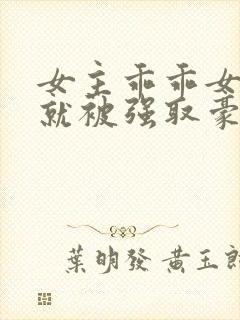 女主乖乖女
就被强取豪
葉明發 黄玉郎